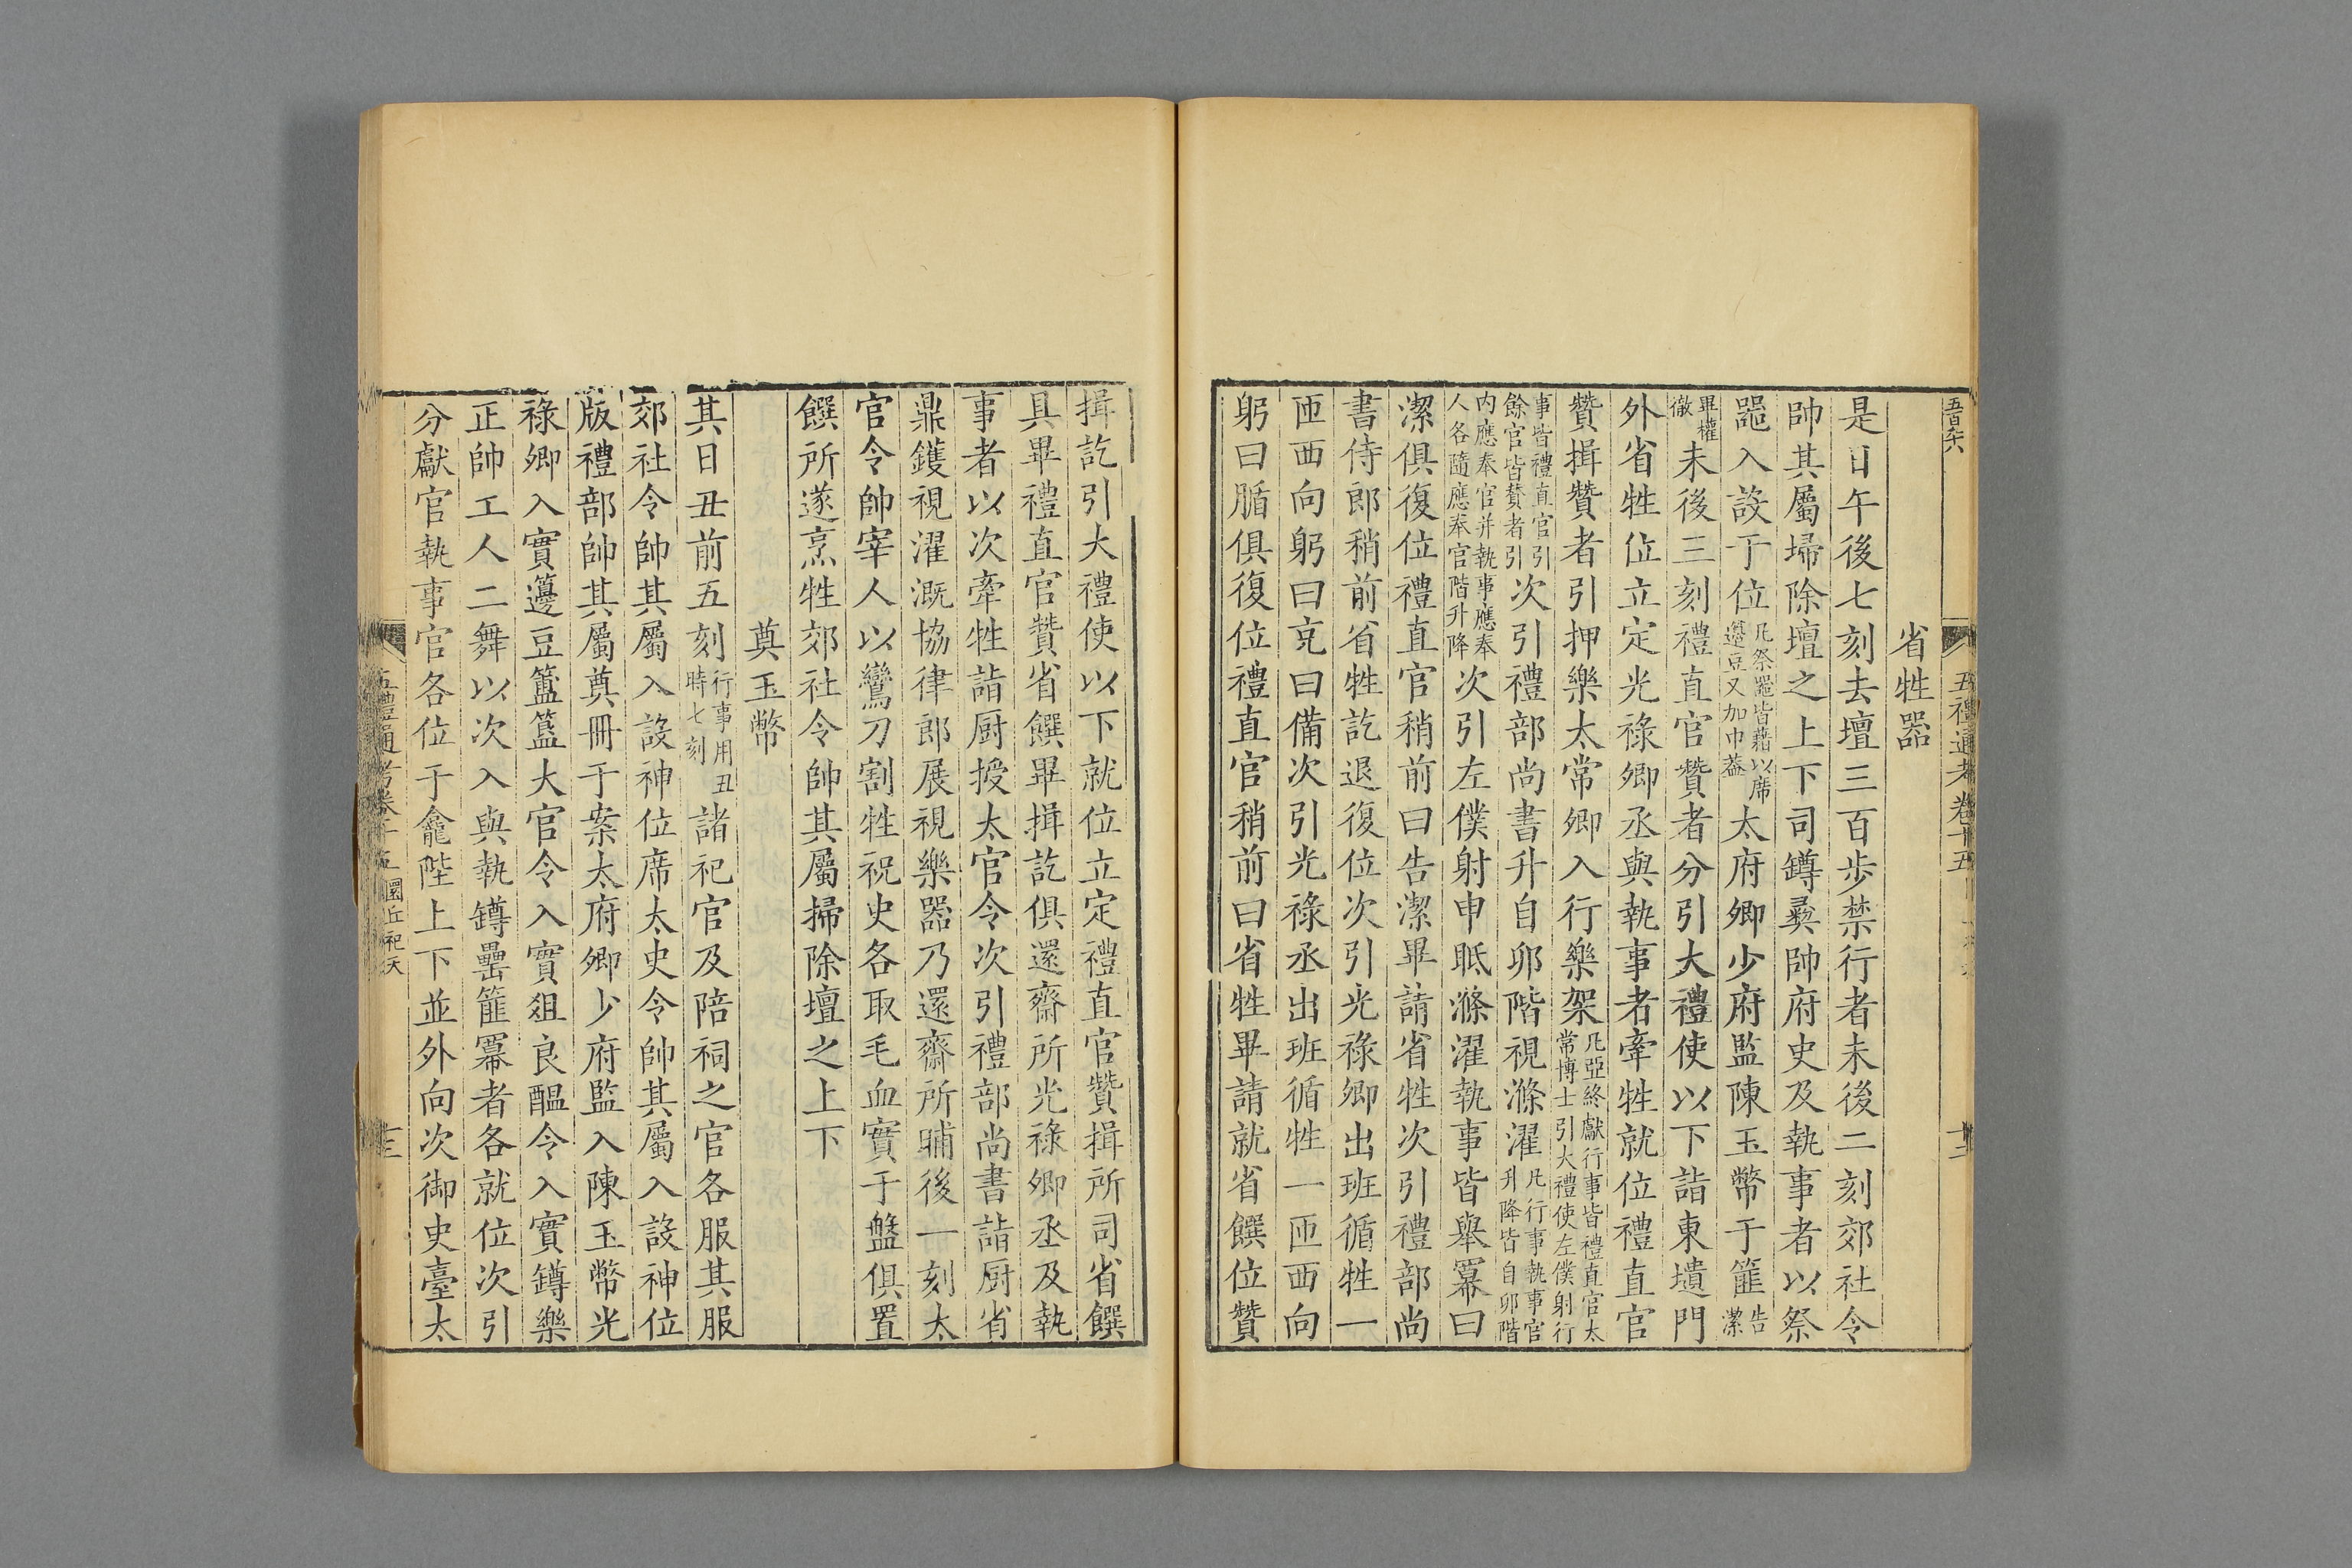 五禮通考卷十五
省牲器
是日午後七刻去壇三百步禁行者未後二刻郊社令
帥其屬埽除壇之上下司罇彞帥府史及執事者以祭
器入設于位凡祭器皆藉以席籩豆又加巾葢太府卿少府監陳玉幣于篚告潔
畢權徹未後三刻禮直官贊者分引大禮使以下詣東壝門
外省牲位立定光祿卿丞與執事者牽牲就位禮直官
贊揖贊者引押樂太常卿入行樂架凡亞終獻行事皆禮直官太常博士引大禮使左僕射行
事皆禮直官引餘官皆贊者引次引禮部尚書升自卯階視滌濯凡行事執事官升降皆自卯階
内應奉官并執事應奉人各隨應奉官階升降次引左僕射申眡滌濯執事皆舉冪曰
潔俱復位禮直官稍前曰告潔畢請省牲次引禮部尚
書侍郎稍前省牲訖退復位次引光祿卿出班循牲一
匝西向躬曰充曰備次引光祿丞出班循牲一匝西向
躬曰腯俱復位禮直官稍前曰省牲畢請就省饌位贊
揖訖引大禮使以下就位立定禮直官贊揖所司省饌
具畢禮直官贊省饌畢揖訖俱還齋所光祿卿丞及執
事者以次牽牲詣厨授太官令次引禮部尚書詣厨省
鼎鑊視濯溉協律郎展視樂器乃還齋所晡後一刻太
官令帥宰人以鸞刀割牲祝史各取毛血實于盤俱置
饌所遂烹牲郊社令帥其屬掃除壇之上下
奠玉幣
其日丑前五刻行事用丑時七刻諸祀官及陪祠之官各服其服
郊社令帥其屬入設神位席太史令帥其屬入設神位
版禮部帥其屬奠冊于案太府卿少府監入陳玉幣光
祿卿入實籩豆簠簋大官令入實俎良醞令入實罇樂
正帥工人二舞以次入與執罇罍篚冪者各就位次引
分獻官執事官各位于龕陛上下並外向次御史臺太
五禮通考卷十五 圜丘祀天 十三